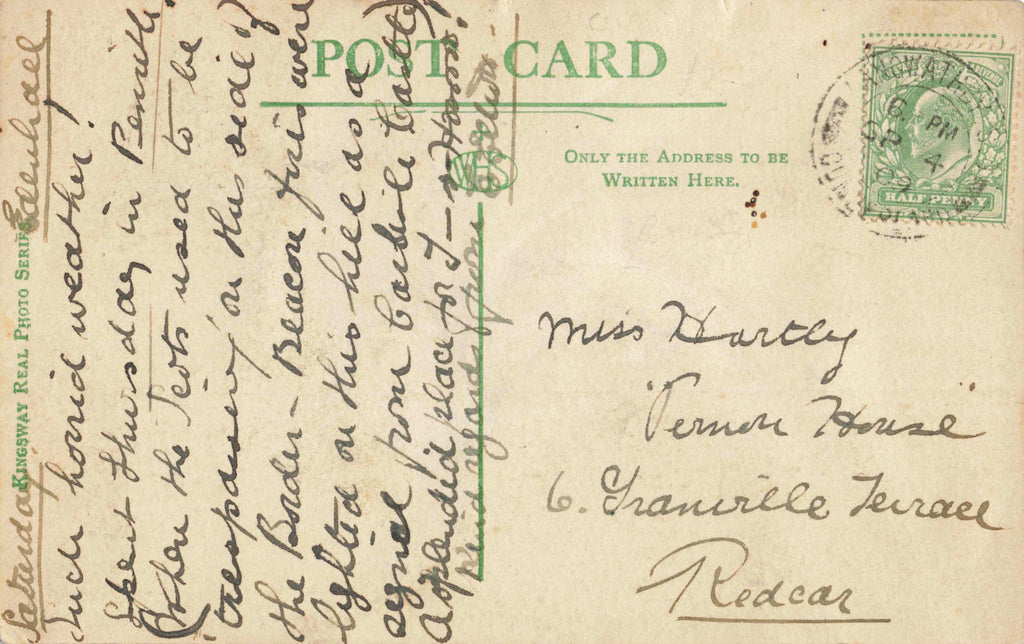 POST CARD
ONLY THE ADDRESS TO BE
WRITTEN HERE.
KINGSWAY REAL PHOTO SERIES
HALFPENNY
6 PM
4
09
Miss Hartley
Vernon House
6. Granville Terrace
Redcar
Saturday
Edenhall
Such horrid weather!
Spent Thursday in Penrith
(When the Scots used to be
trespassing on this side of
the Border – Beacon fires were
lighted on this hill as a
signal from Carlisle Castle)
A splendid place for
Kind regards from